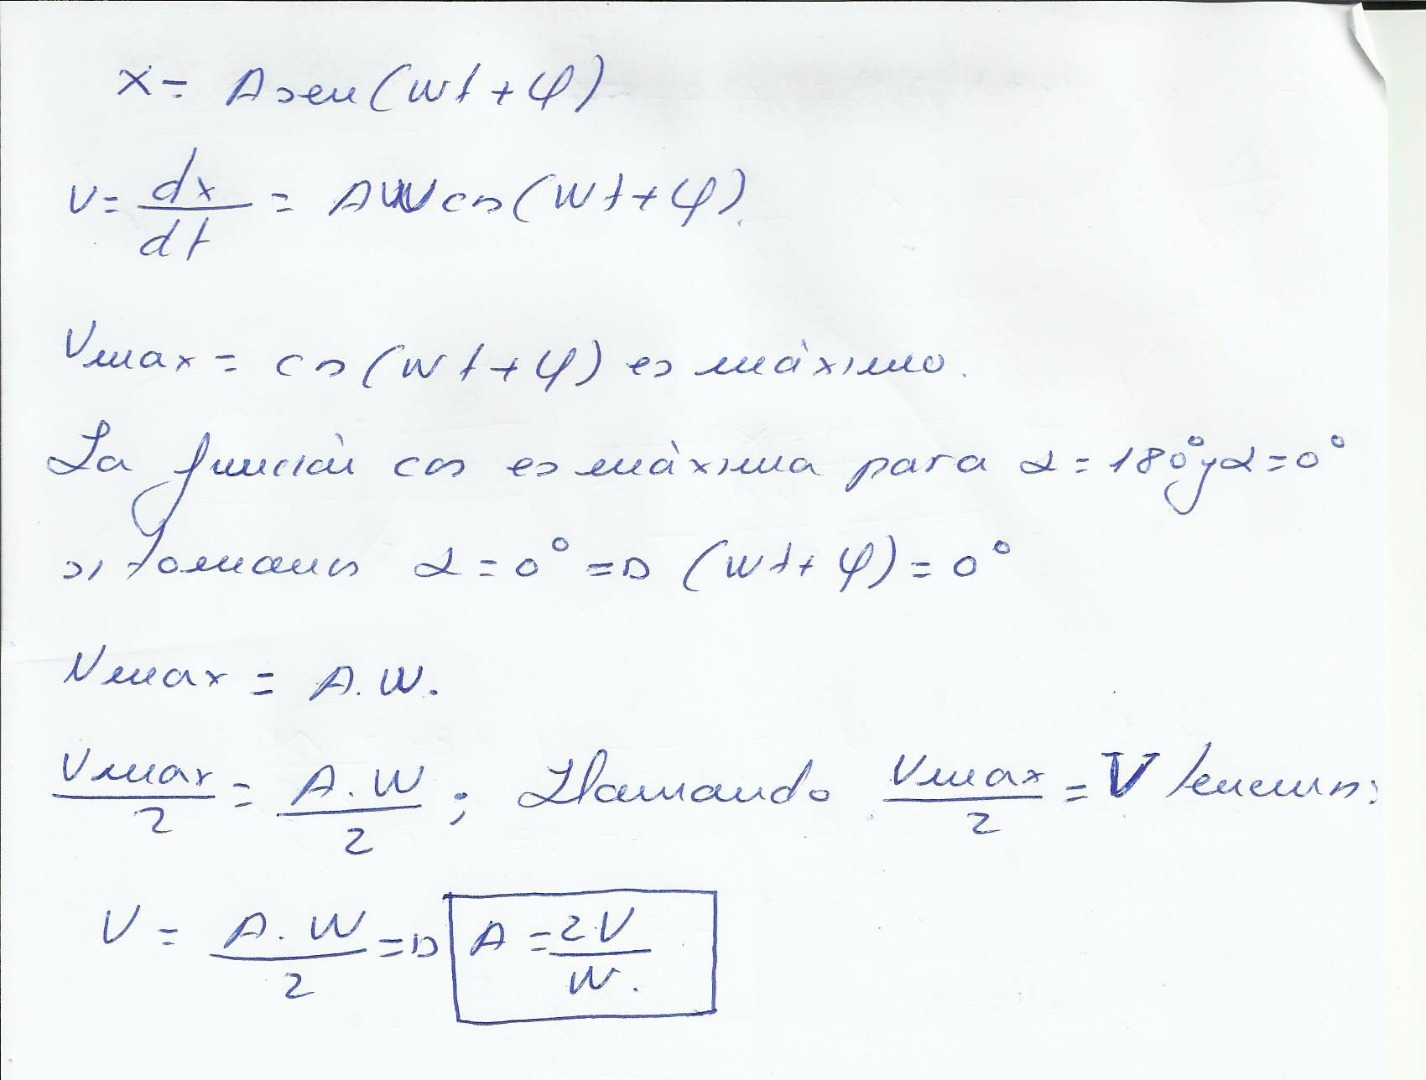 x = A sen(wt + φ)
v = dx/dt = AW cos(wt + φ).
Vmax = cos(wt + φ) es máximo.
La función cos es máxima para α = 180° y α = 0°
si tomamos α = 0° => (wt + φ) = 0°
Vmax = A.W.
Vmax/2 = A.W/2 ; Llamando Vmax/2 = V tenemos:
V = A.W/2 => A = 2V/W.